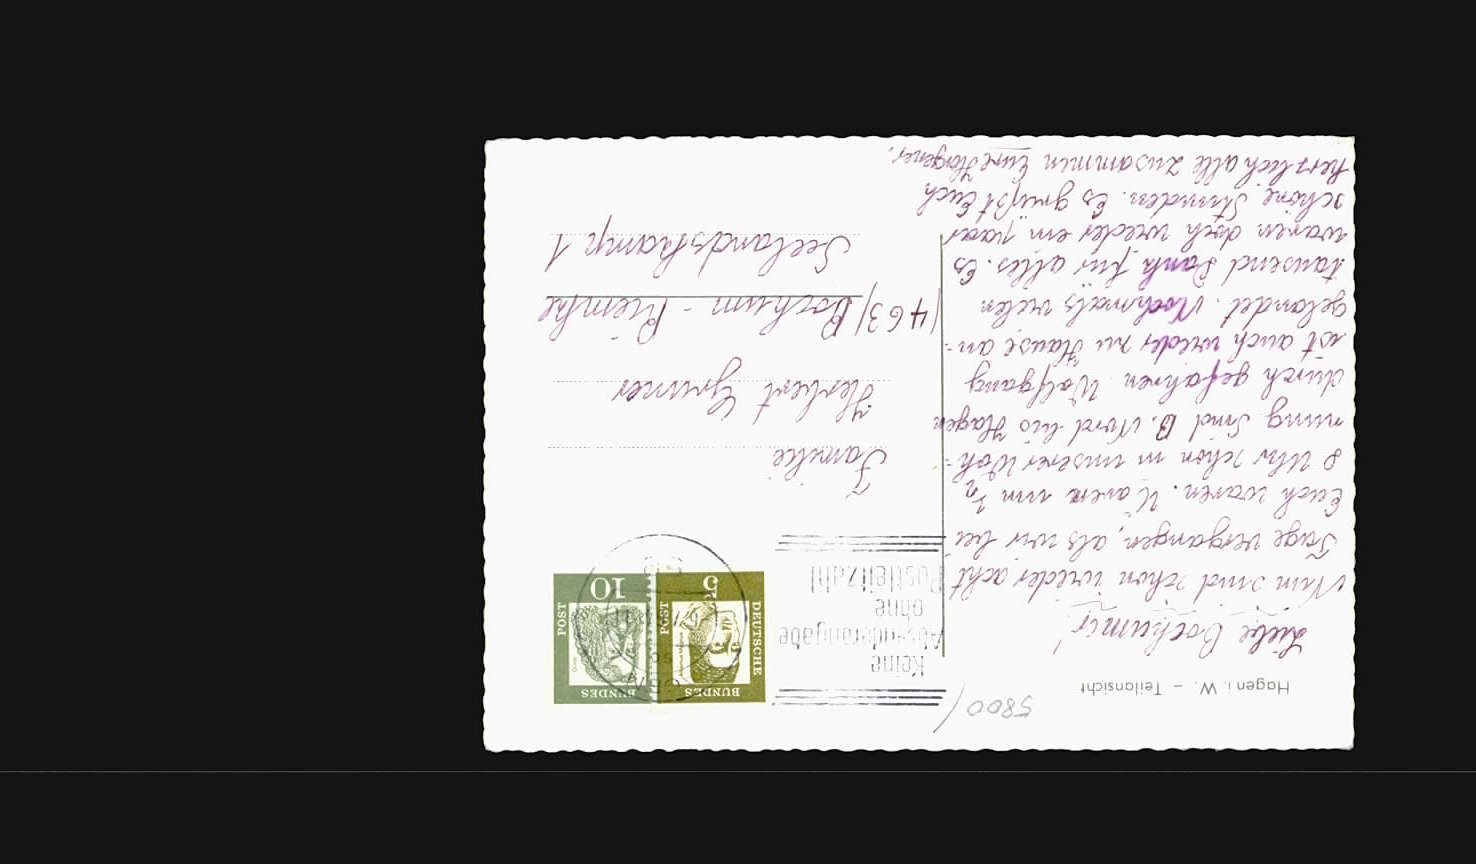 Hagen i. W. – Teilansicht
5800
Liebe Bochumer!
Nun sind schon wieder acht
Tage vergangen, als wir bei
Euch waren. Waren um ½
8 Uhr schon in unserer Woh-
nung. Sind B. Nord bis Hagen
durch gefahren. Wolfgang
ist auch wieder zu Hause an-
gelandet. Nochmals vielen
tausend Dank für alles. Es
waren doch wieder ein paar
schöne Stunden. Es grüßt Euch
herzlich alle zusammen Eure Hagener.
Keine
Absenderangabe
ohne
Postleitzahl
DEUTSCHE
BUNDES
POST
5
BUNDES
POST
10
Familie
Herbert Grüner
(463) Bochum - Riemke
Seelandskamp 1